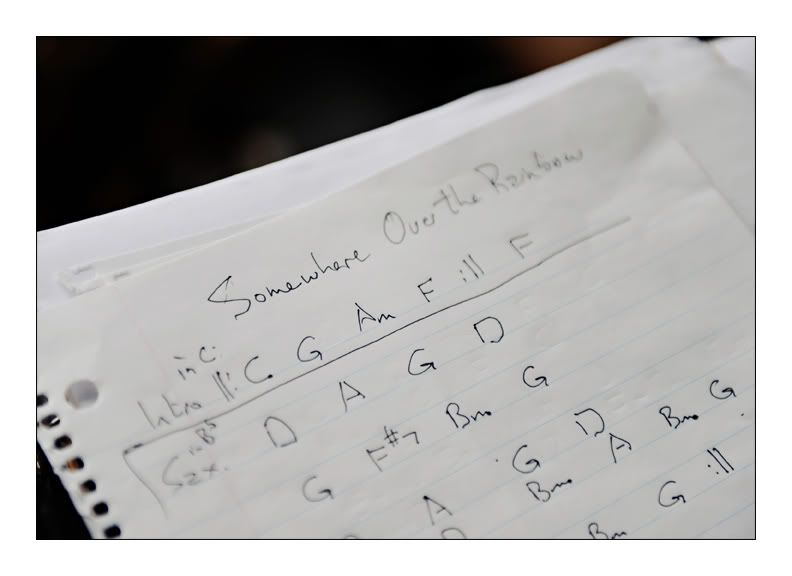 Somewhere Over the Rainbow
in C.
Intro ||: C G Am F :|| F
D A G D
2x.
G F#7 Bm G
A G D
Bm A Bm G
D Bm G :||